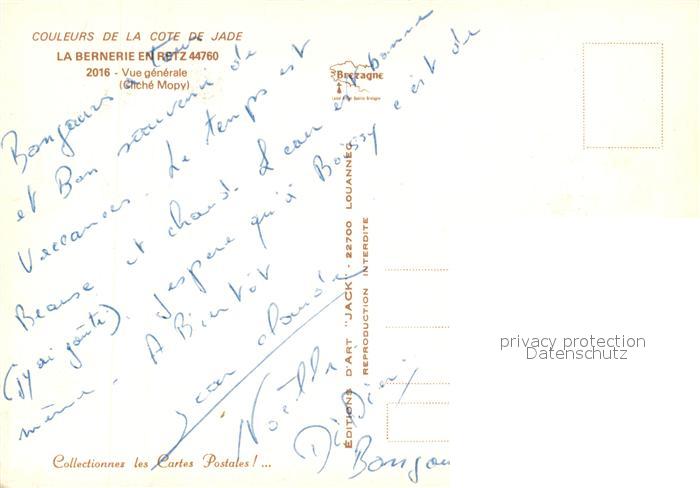 COULEURS DE LA COTE DE JADE
LA BERNERIE EN RETZ 44760
2016 - Vue générale
(Cliché Mopy)
Bretagne
Bongours a tous
et Bon souvenir de
Veccances. Le temps est
Beause et chaud. L'eau est bonne
(j'y ai goûté). J'espere qu'à Boissy c'est de
même. A Bientôt
Jean claude
Noëlle
Didier
Bongou
EDITIONS D'ART "JACK" - 22700 LOUANNEC
REPRODUCTION INTERDITE
privacy protection
Datenschutz
Collectionnez les Cartes Postales ! ...